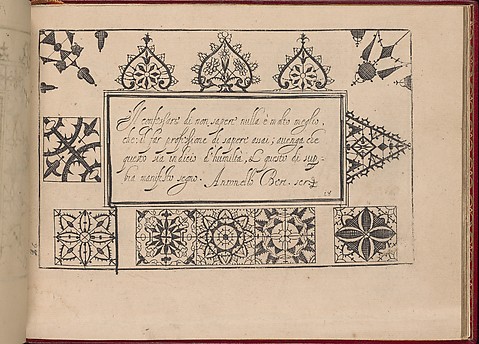 Il confessare di non sapere nulla è molto meglio,
che il far professione di sapere assai; auenga che
questo sia indicio d'humiltà, & questo di sup-
bia manifesto segno. Antonello Ber. scr.